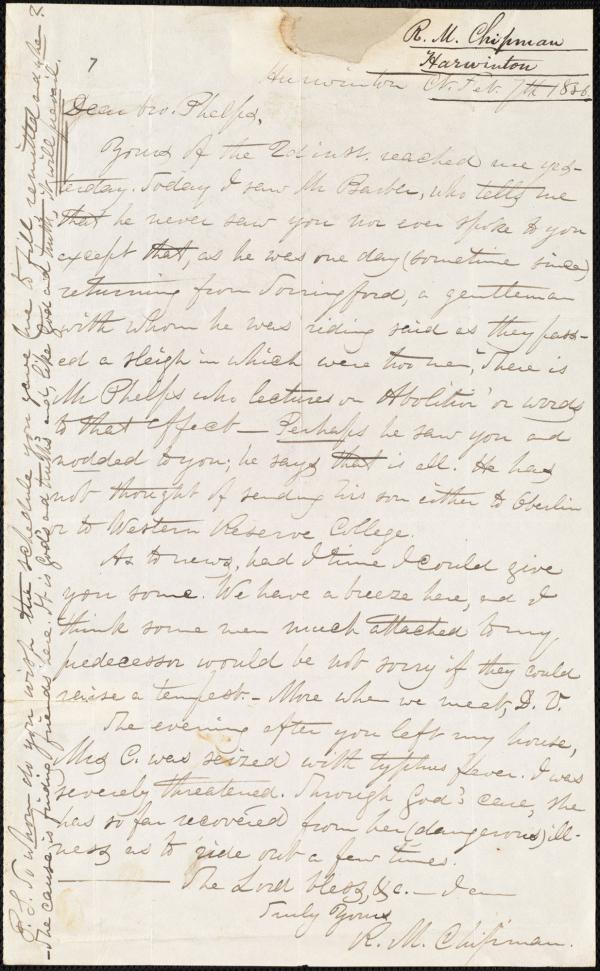 R. M. Chipman
Harwinton
7
Harwinton Ct. Feb. 7th 1836.
Dear bro. Phelps,
Yours of the 2d inst. reached me yes-
terday. Today I saw Mr Barber, who tells me
that he never saw you nor ever spoke to you
except that, as he was one day (sometime since)
returning from Torringford, a gentleman
with whom he was riding said as they pass-
ed a sleigh in which were two men, "There is
Mr Phelps who lectures on Abolition" or words
to that effect — Perhaps he saw you and
nodded to you; he says that is all. He has
not thought of sending his son either to Oberlin
or to Western Reserve College.
As to news, had I time I could give
you some. We have a breeze here, and I
think some men much attached to my
predecessor would be not sorry if they could
raise a tempest — More when we meet, D. V.
The evening after you left my house,
Mrs C. was seized with typhus fever. I was
severely threatened. Through God's care, she
has so far recovered from her (dangerous) ill-
ness as to ride out a few times.
The Lord bless, &c. — I am
Truly Yours
R. M. Chipman.
P. S. To whom do you wish the schedule you gave me to fill remitted and when?
— The cause is finding friends here. It is God's and truth's and, like God and truth, it will prevail.